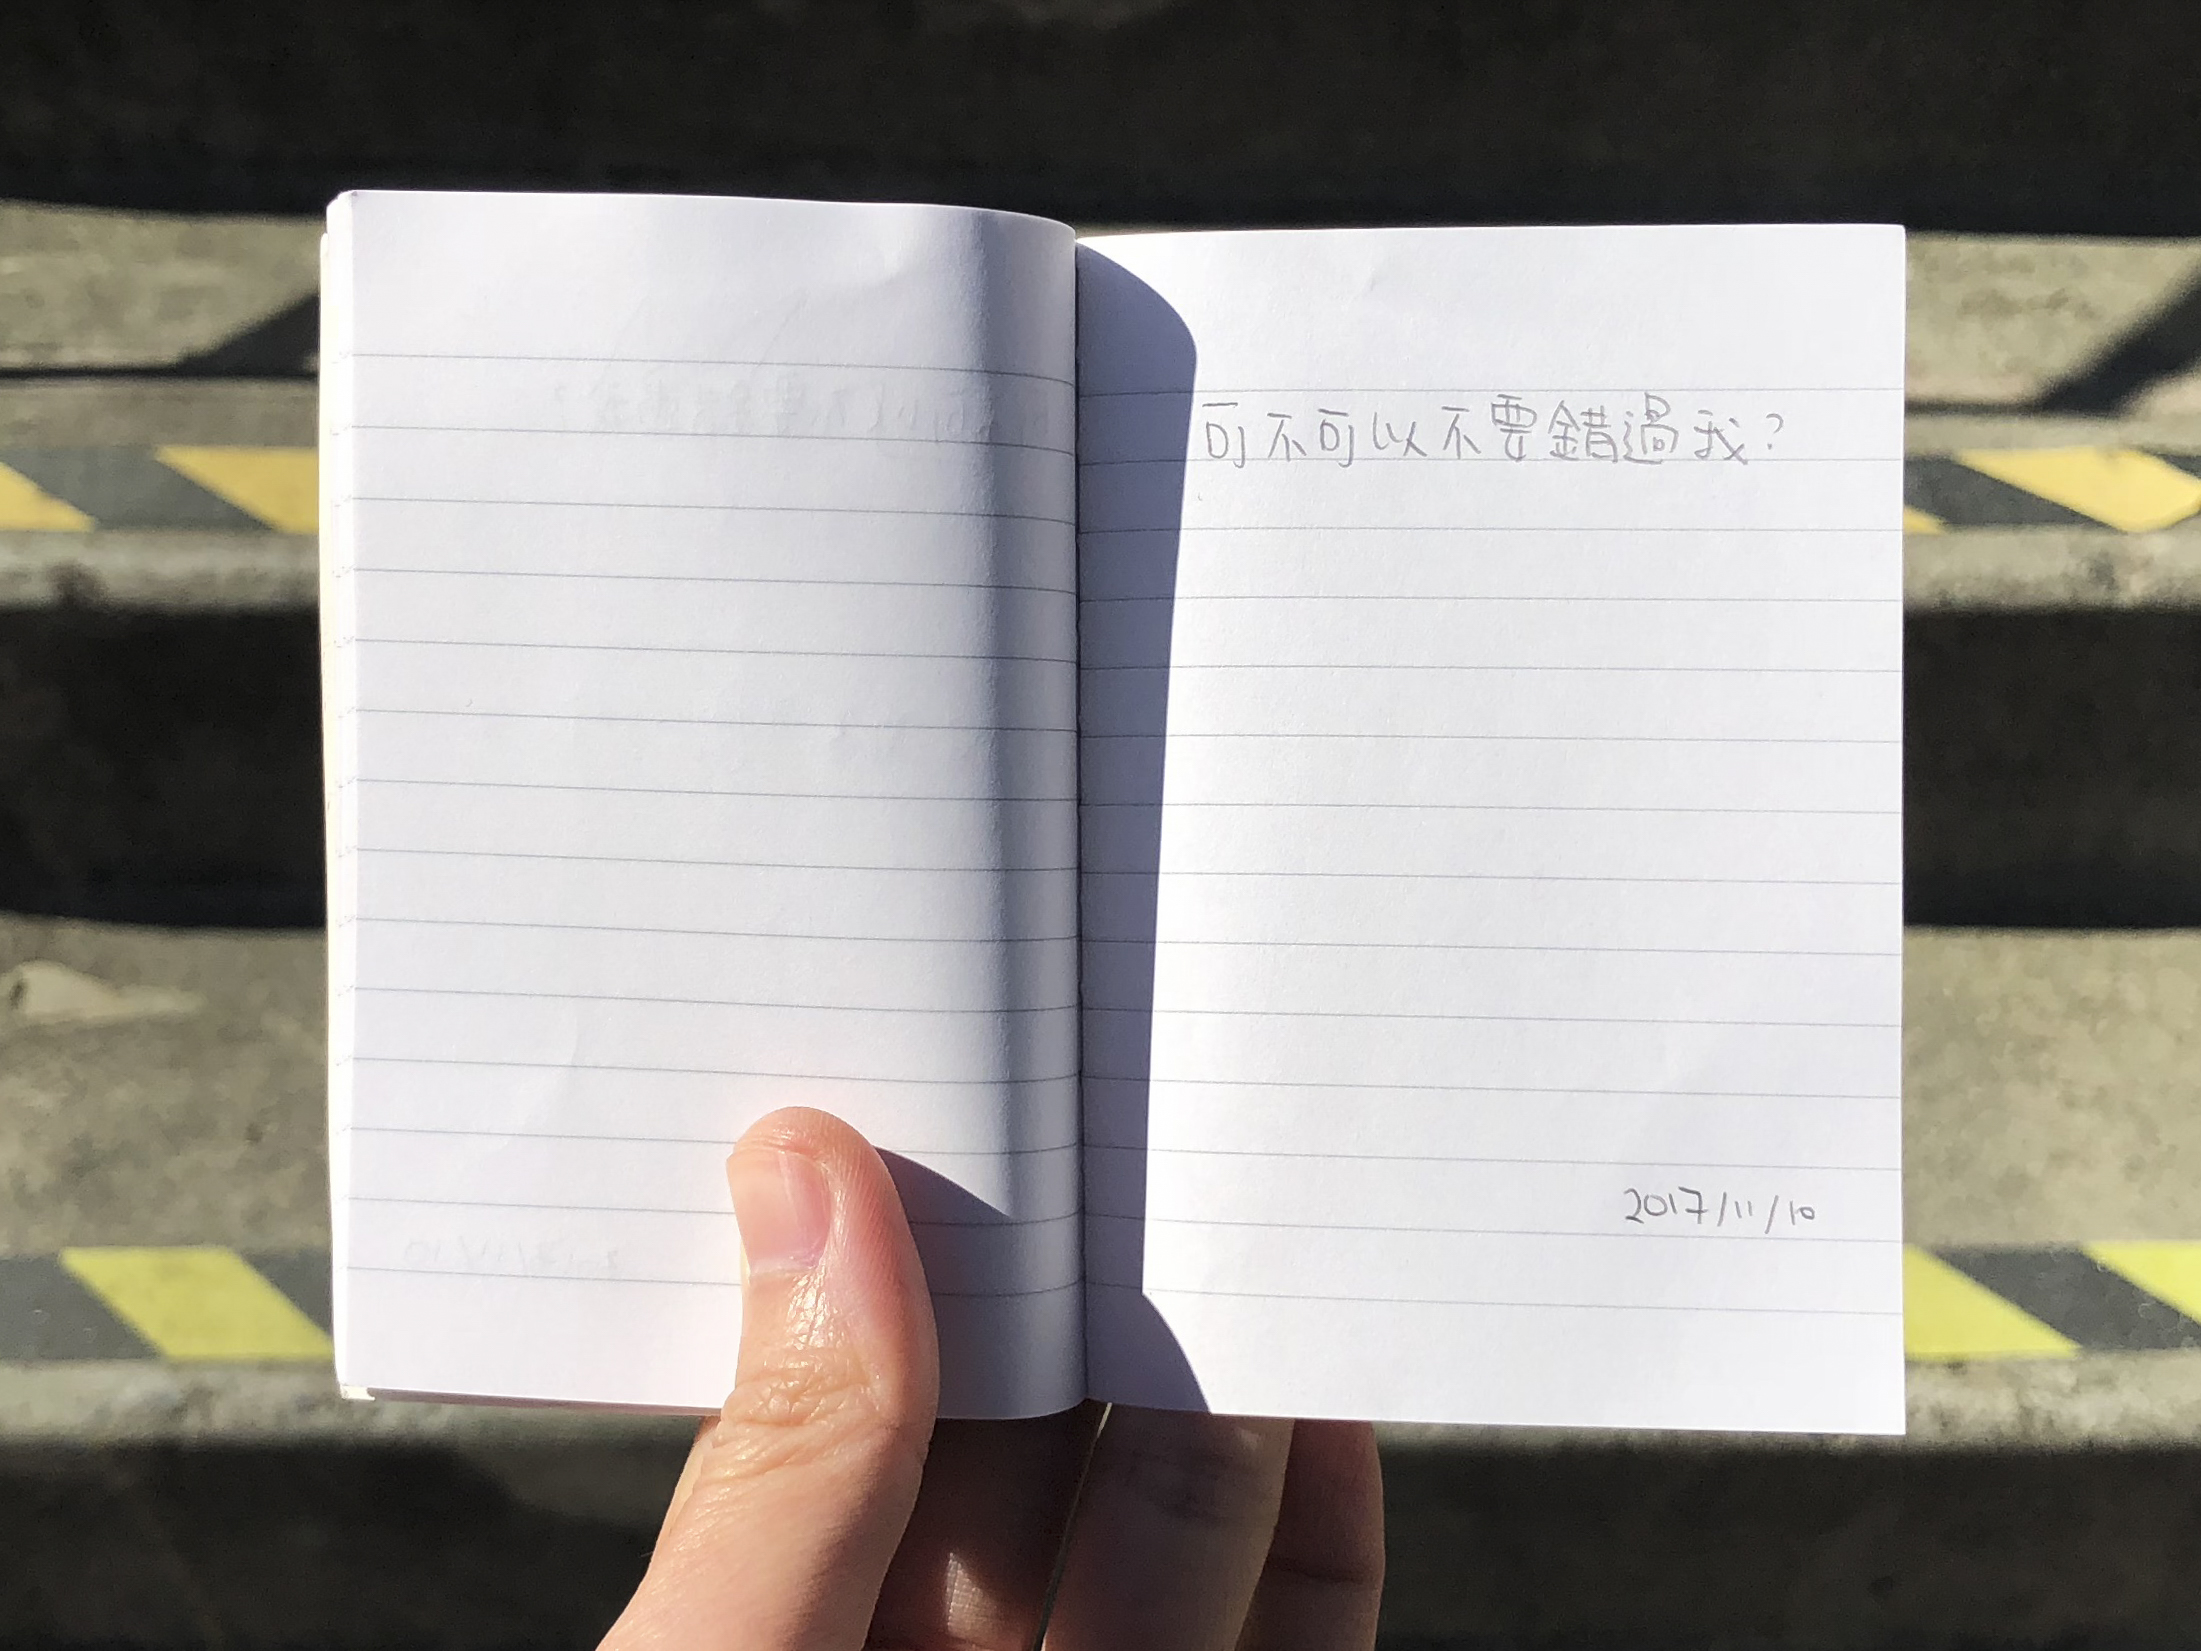 可不可以不要錯過我?
2017/11/10